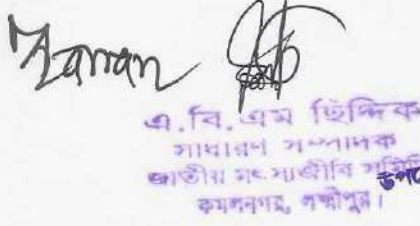 Zaman
এ.বি.এম ছিদ্দিক
সাধারণ সম্পাদক
জাতীয় মৎস্যজীবি সমিতি
কমলনগর, লক্ষ্মীপুর।